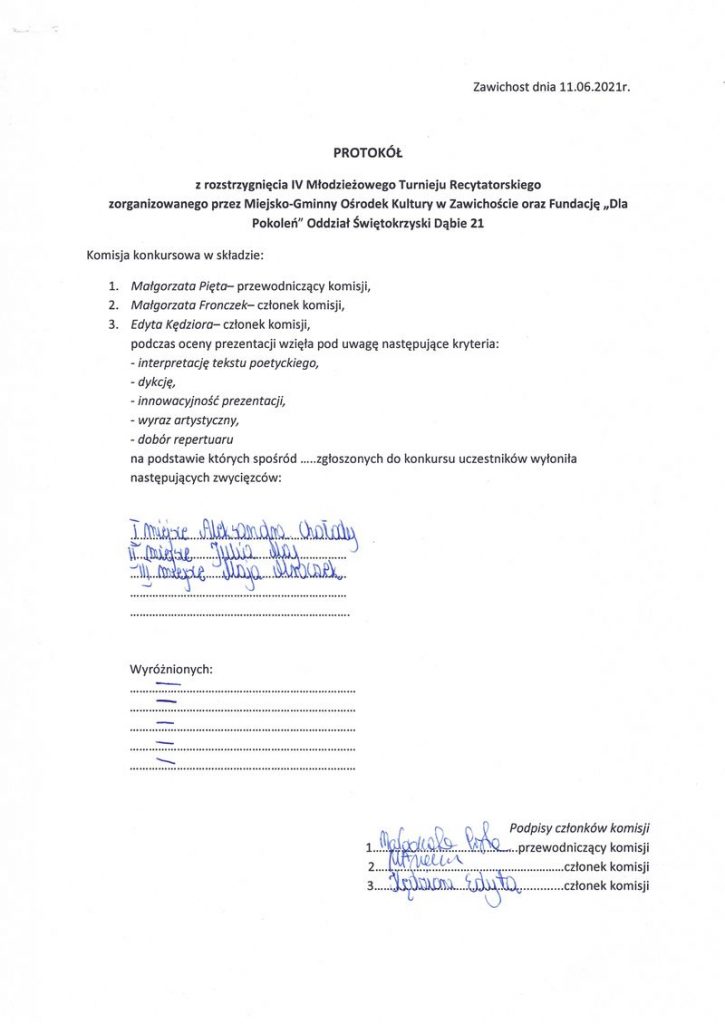 Zawichost dnia 11.06.2021r.
PROTOKÓŁ
z rozstrzygnięcia IV Młodzieżowego Turnieju Recytatorskiego
zorganizowanego przez Miejsko-Gminny Ośrodek Kultury w Zawichoście oraz Fundację „Dla
Pokoleń” Oddział Świętokrzyski Dąbie 21
Komisja konkursowa w składzie:
1. Małgorzata Pięta– przewodniczący komisji,
2. Małgorzata Fronczek– członek komisji,
3. Edyta Kędziora– członek komisji,
podczas oceny prezentacji wzięła pod uwagę następujące kryteria:
- interpretację tekstu poetyckiego,
- dykcję,
- innowacyjność prezentacji,
- wyraz artystyczny,
- dobór repertuaru
na podstawie których spośród .....zgłoszonych do konkursu uczestników wyłoniła
następujących zwycięzców:
I miejsce Aleksandra
II miejsce Julia Maj
III miejsce Maja
Wyróżnionych:
Podpisy członków komisji
1. Małgorzata Pięta przewodniczący komisji
2. członek komisji
3. Kędziora Edyta członek komisji